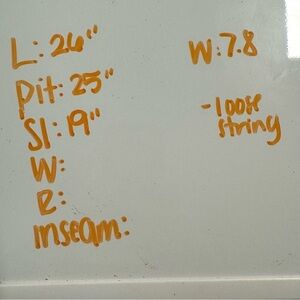 L: 26"
Pit: 25"
Sl: 19"
W:
R:
Inseam:
W: 7.8
-loose
string